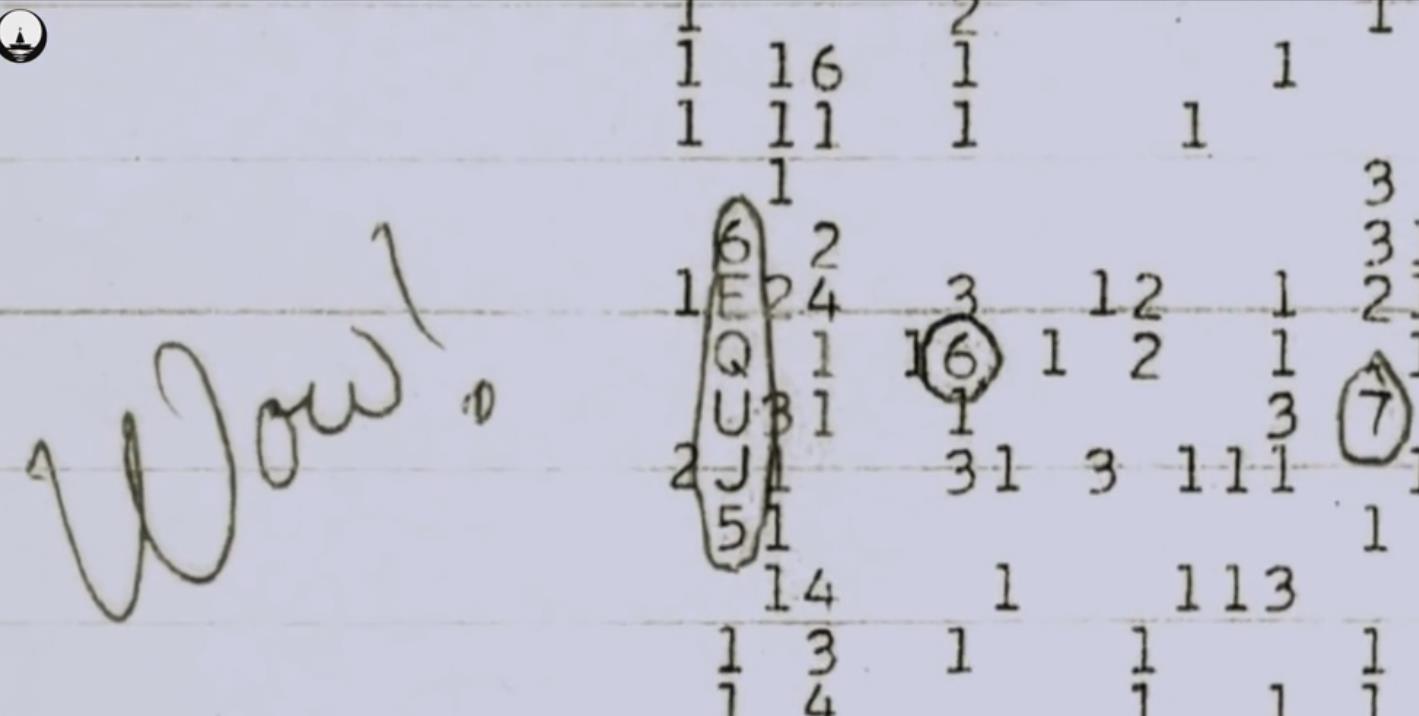 1 2 1
1 16 1 1
1 11 1 1
1 3
6 2 3
1 E 2 4 3 1 2 1 2
Q 1 1 6 1 2 1
U 3 1 1 3 7
2 J 1 3 1 3 1 1 1 1
5 1 1
1 4 1 1 1 3
1 3 1 1 1
1 4 1 1 1
Wow!